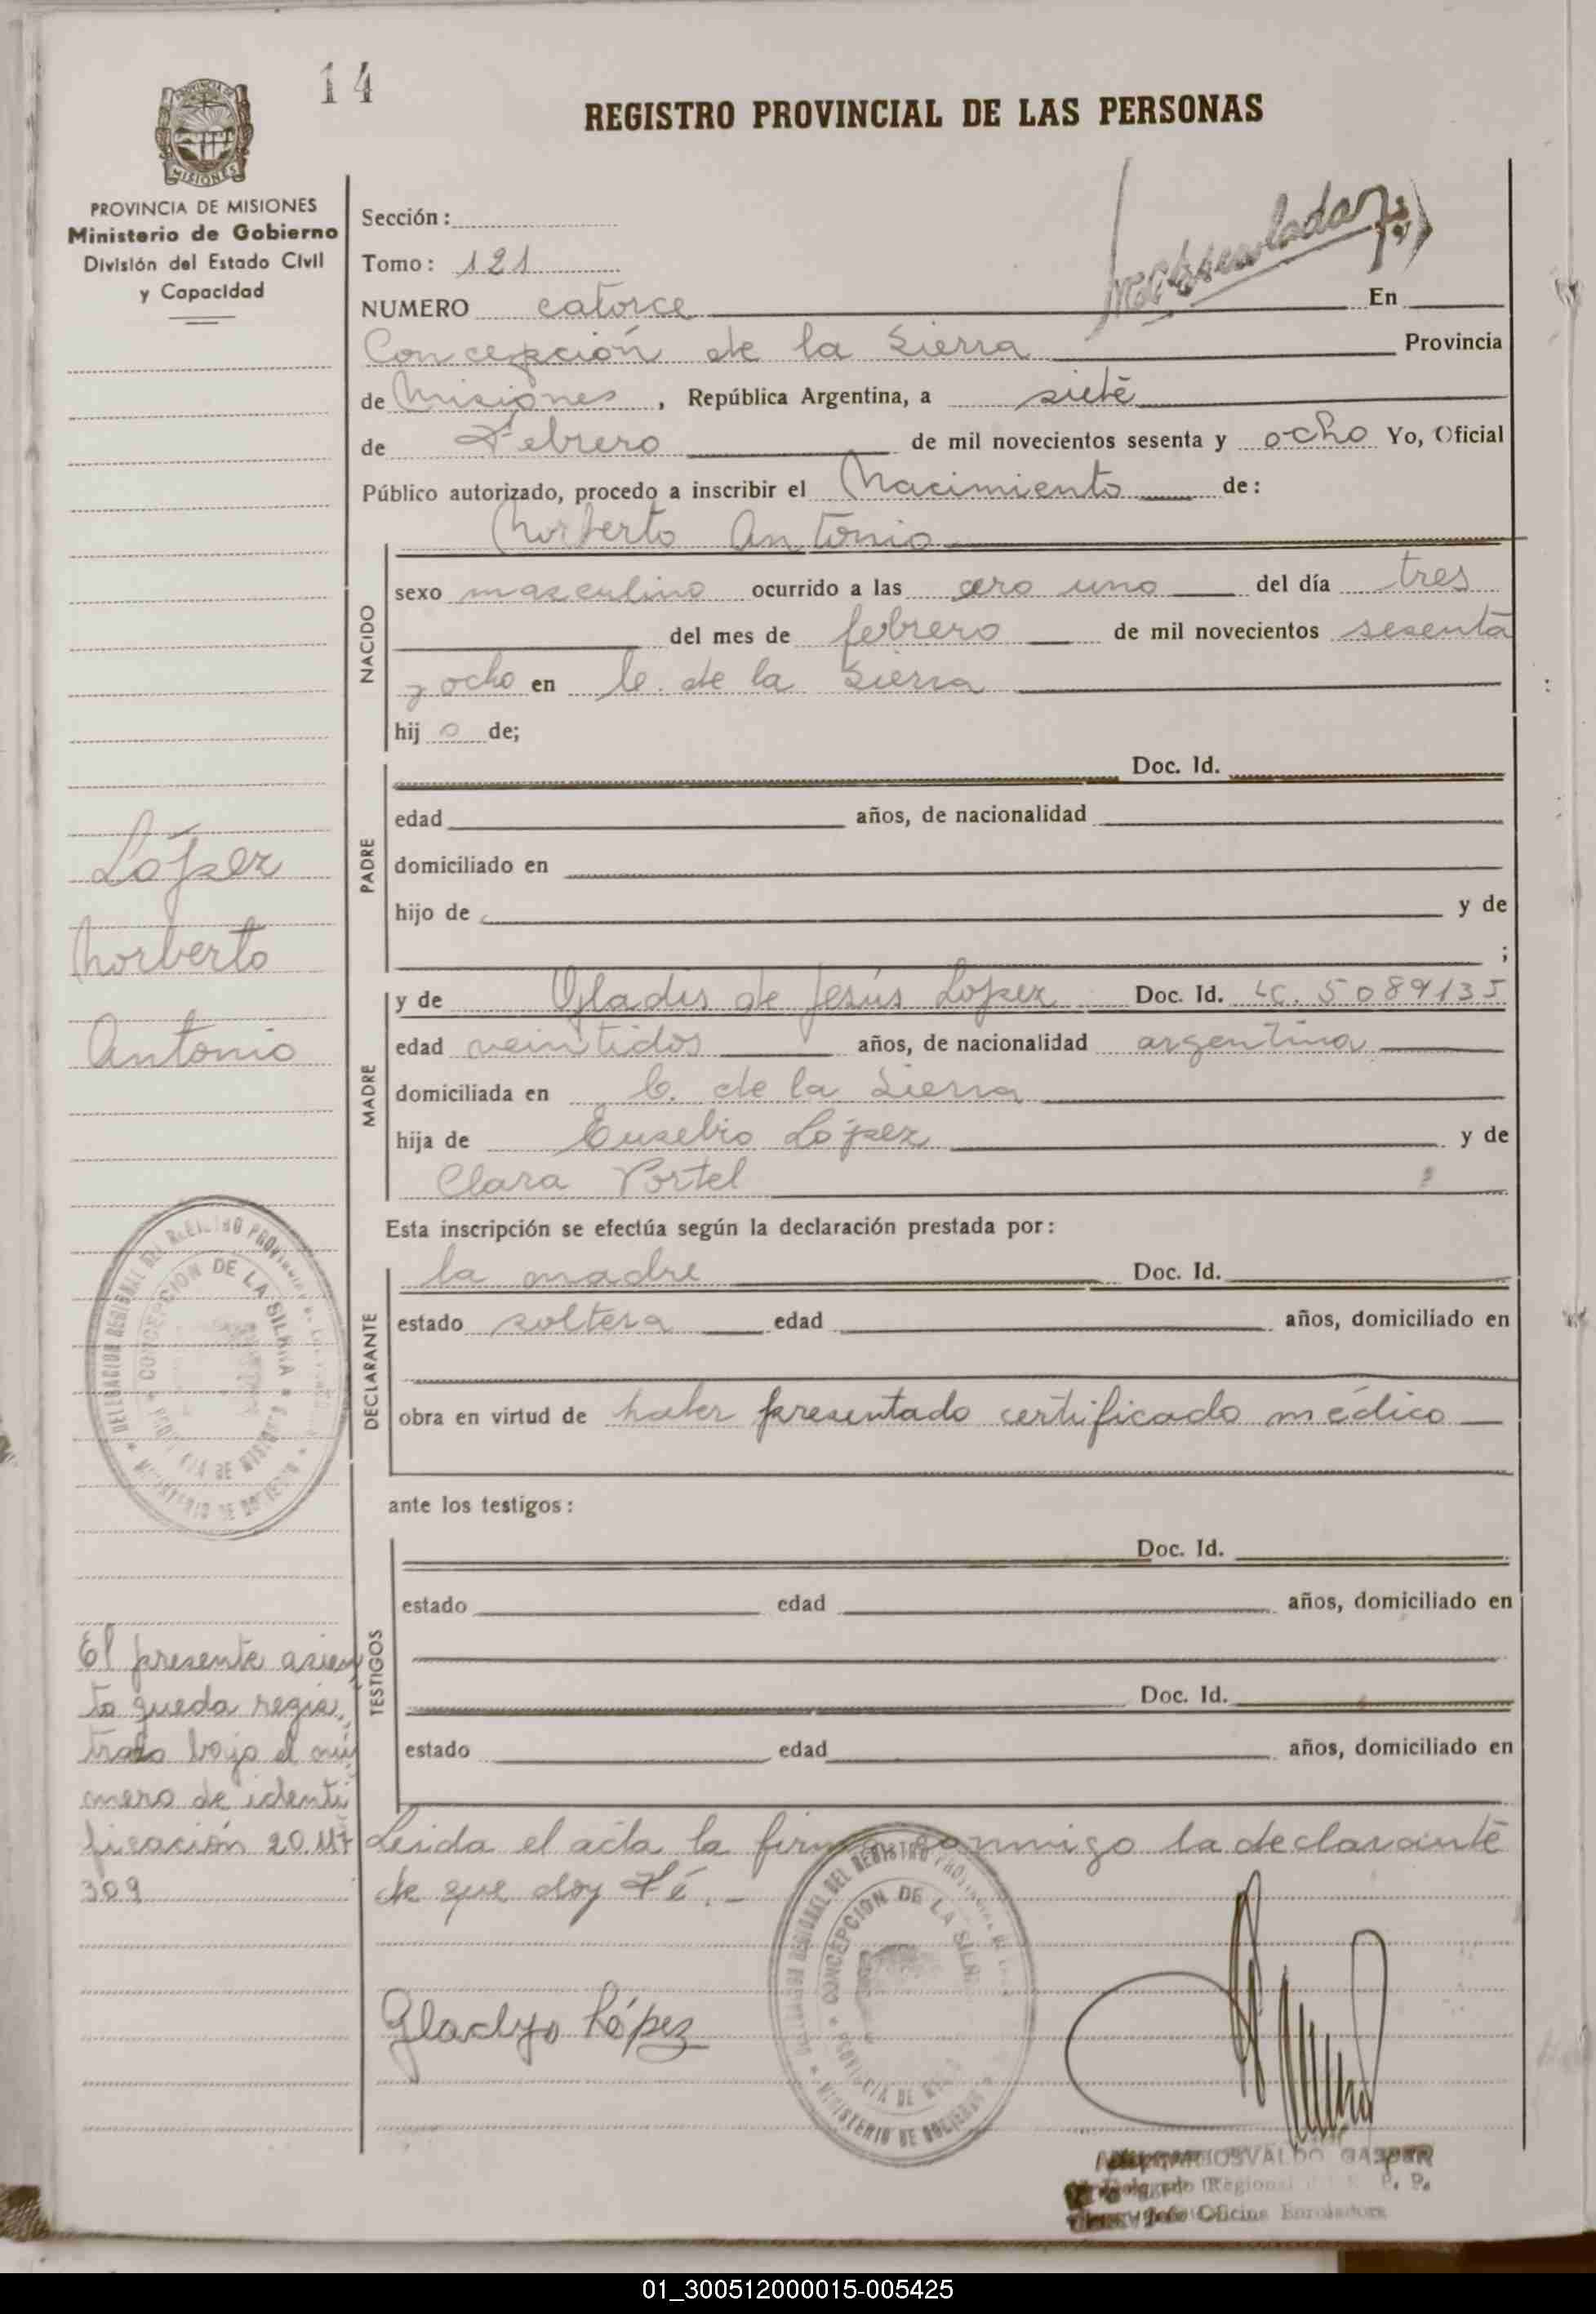 14
REGISTRO PROVINCIAL DE LAS PERSONAS
PROVINCIA DE MISIONES
Ministerio de Gobierno
División del Estado Civil
y Capacidad
Sección:
Tomo: 121
NUMERO catorce En
Concepción de la Sierra Provincia
de Misiones, República Argentina, a siete
de Febrero de mil novecientos sesenta y ocho Yo, Oficial
Público autorizado, procedo a inscribir el Nacimiento de:
Norberto Antonio
NACIDO
sexo masculino ocurrido a las cero uno del día tres
del mes de febrero de mil novecientos sesenta
y ocho en C. de la Sierra
hij o de;
PADRE
Doc. Id.
edad años, de nacionalidad
domiciliado en
hijo de y de
;
López
Norberto
Antonio
MADRE
y de Gladis de Jesús López Doc. Id. LC. 5089135
edad veintidos años, de nacionalidad argentina
domiciliada en C. de la Sierra
hija de Eusebio López y de
Clara Portel ;
Esta inscripción se efectúa según la declaración prestada por:
DECLARANTE
la madre Doc. Id.
estado soltera edad años, domiciliado en
obra en virtud de haber presentado certificado médico
DELEGACION REGIONAL DEL REGISTRO PROVINCIAL DE LAS
CONCEPCION DE LA SIERRA
PROVINCIA DE MISIONES
MINISTERIO DE GOBIERNO
ante los testigos:
TESTIGOS
Doc. Id.
estado edad años, domiciliado en
Doc. Id.
estado edad años, domiciliado en
El presente asien
to queda regis
trado bajo el nú
mero de identi
ficación 20.117
309
Leida el acta la firma conmigo la declarante
de que doy Fé.-
Gladys López
DELEGACION REGIONAL DEL REGISTRO PROVINCIAL DE
CONCEPCION DE LA SIERRA
PROVINCIA DE MISIONES
MINISTERIO DE GOBIERNO
OSVALDO GASPER
Delegado Regional P. P.
Jefe Oficina Enroladora
01_300512000015-005425